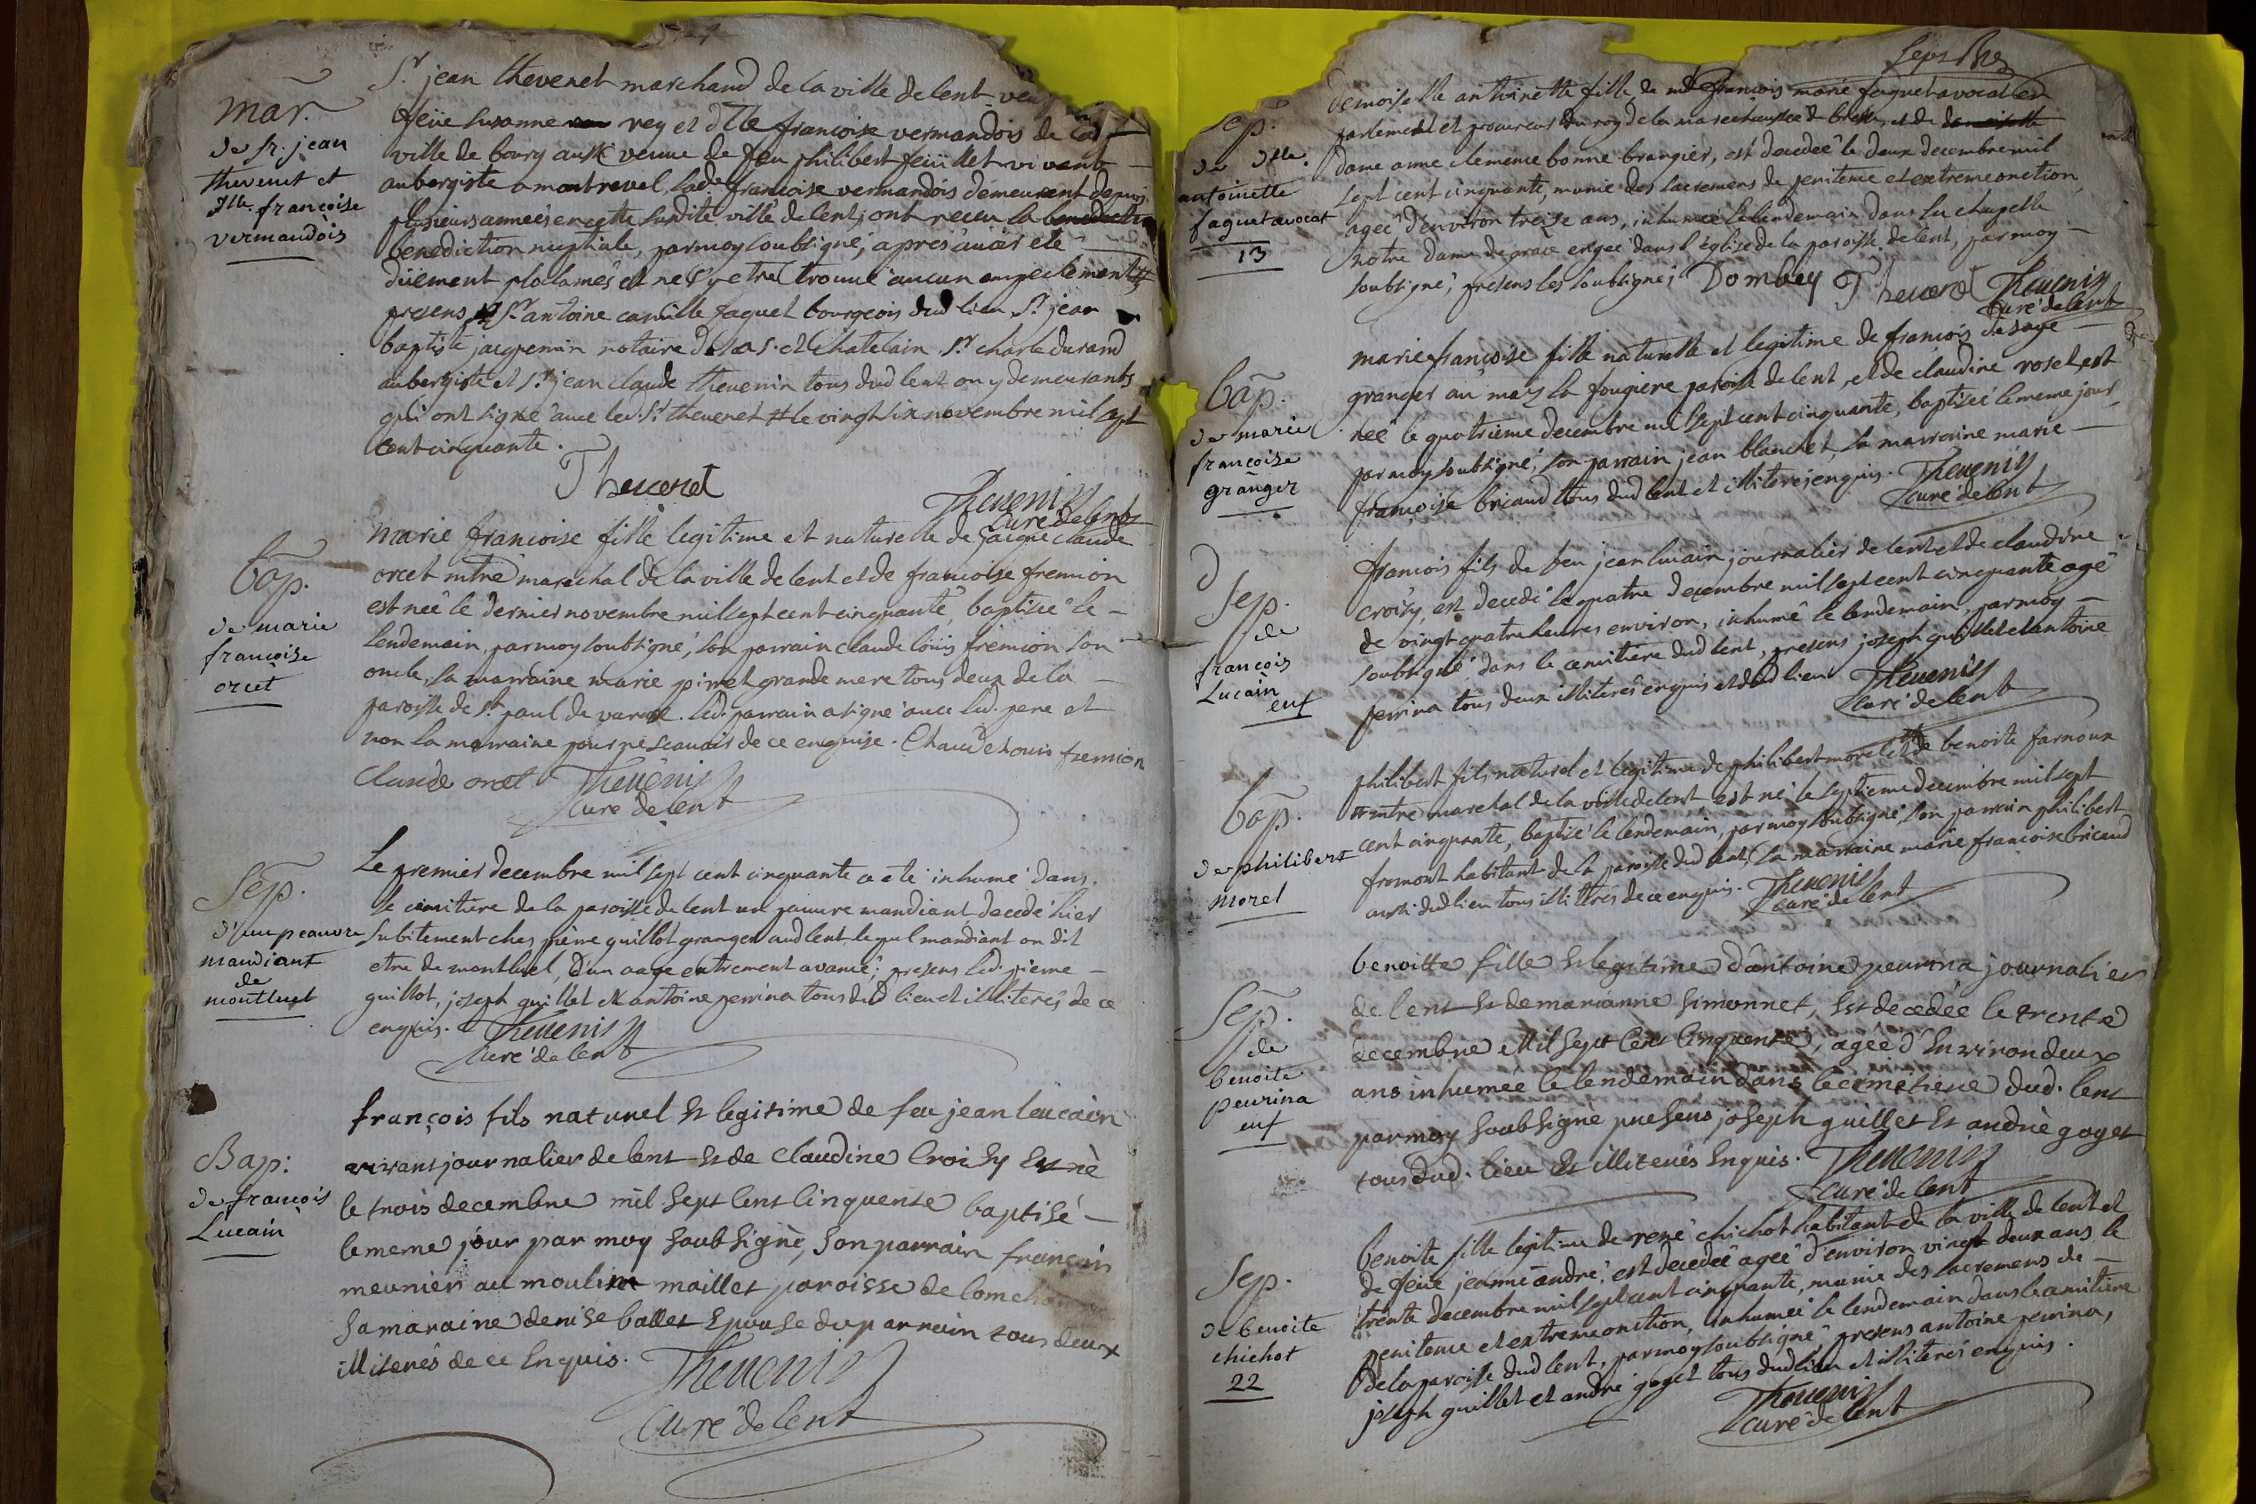 mar.
de sr. jean
thevenet et
dlle. francoise
vermandois
Sr jean thevenet marchand de la ville de lent
feüe susanne rey et dlle francoise vermandois de lad
ville de bourg aussi veuve de feu philibert feüillet vivant
aubergiste a montrevel, lade francoise vermandois demeurent depuis
plusieurs années en cette susdite ville de lent; ont receu la
benediction nuptiale, par moy soubsigné, apres avoir été
düement proclamés et ne s'y etre trouvé aucun empechement #
presens sr antoine camille faguet bourgeois dud lieu sr jean
baptiste jacquemin notaire et chatelain sr charle durand
aubergiste et sr jean claude thevenin tous dud lent ou y demeurants
qui ont signé avec led. sr thevenet # le vingt six novembre mil sept
cent cinquante.
Thevenet
Thevenin
curé de lent
bap.
de marie
francoise
orcet
marie francoise fille legitime et naturelle de jacque claude
orcet mtre marechal de la ville de lent et de francoise fremion
est neé le dernier novembre mil sept cent cinquante, baptisée le
lendemain, par moy soubsigné, son parrain claude loüis fremion son
oncle, sa marraine marie pirret grande mere tous deux de la
paroisse de st paul de varax. led. parrain a signé avec led. pere et
non la marraine pour ne scavoir de ce enquise. Claude Louis fremion
Claude orcet Thevenin
curé de lent
Sep.
d'un peauvre
mandiant
de
montluel
Le premier decembre mil sept cent cinquante a eté inhumé dans
le cimitiere de la paroisse de lent un pauvre mandiant decedé hier
subitement ches pierre guillot granger aud lent lequel mandiant on dit
etre de montluel, d'un aage entrement avancé; presens led. pierre
guillot, joseph guillet et antoine perrina tous dud lieu et illiterés de ce
enquis. Thevenin
curé de lent
Bap:
de francois
Lucain
françois fils naturel et legitime de feu jean leucain
vivant journalier de lent et de claudine Croisy est nè
le trois decembre mil sept cent cinquente baptisé
le meme jour par moy soubsignè, son parrain francois
meunier au moulin maillet paroisse de
sa maraine denise ballet epouse du parrain tous deux
illiterés de ce enquis. Thevenin
curé de lent
sep.
de dlle.
antoinette
faguet avocat
13
Sepsre
demoiselle anthoinette fille de mtre francois marie faguet avocat en
parlement et procureur du roy de la marechaussée de bresse, et de
dame anne clemence bonne brangier, est decedeé le deux decembre mil
sept cent cinquante, munie des sacremens de penitence et extremeonction
agée d'environ treise ans, inhumée le lendemain dans la chapelle
notre dame de grace erigée dans l'eglise de la paroisse de lent, par moy
soubsigné, presens les soubsignés Dombey Thevenet Thevenin
curé de lent
bap.
de marie
françoise
granger
marie françoise fille naturelle et legitime de francois desaye
granger au mas la fougiere paroisse de lent, et de claudine roset est
neé le quatrieme decembre mil sept cent cinquante, baptiseé le meme jour
par moy soubsigné, son parrain jean blanchet, sa marraine marie
françoise bricaud tous dud lent et illiterés enquis. Thevenin
curé de lent
Sep.
de
francois
Lucain
enf
francois fils de feu jean lucain journalier de lent et de claudine
croisy, est decedé le quatre decembre mil sept cent cinquante, agé
de vingt quatre heures environ, inhumé le lendemain, par moy
soubsigné dans le cemitiere dud lent, presens joseph guillet et antoine
perrina tous deux illiterés enquis et dud lieu Thevenin
curé de lent
bap.
de philibert
morel
philibert fils naturel et legitime de philibert morel # et de benoite farnoux
# mtre marechal de la ville de lent est né le septieme decembre mil sept
cent cinquante, baptisé le lendemain, par moy soubsigné, son parrain philibert
fromont habitant de la paroisse dud lent, la marraine marie francoise bricaud
aussi dud lieu tous illiterés de ce enquis. Thevenin
curé de lent
Sep.
de
benoite
perrina
enf
benoitte fille et legitime d'antoine perrina journalier
de lent et de marianne simonnet, est decedée le trente
decembre mil sept cent cinquente, agée d'environ deux
ans inhumée le lendemain dans le cimetiere dud. lent
par moy soubsignè presens joseph guillet et andrè goget
tous dud. lieu et illiterés enquis. Thevenin
curé de lent
Sep.
de benoite
chichot
22
benoite fille legitime de rené chichot habitant de la ville de lent et
de feüe jeanne andré, est decedeé agée d'environ vingt deux ans le
trente decembre mil sept cent cinquante, munie des sacremens de
penitence et extremeonction, inhumée le lendemain dans le cemitiere
de la paroisse dud lent, par moy soubsigné, presens antoine perrina,
joseph guillet et andré goget tous dud lieu et illiterés enquis.
Thevenin
curé de lent